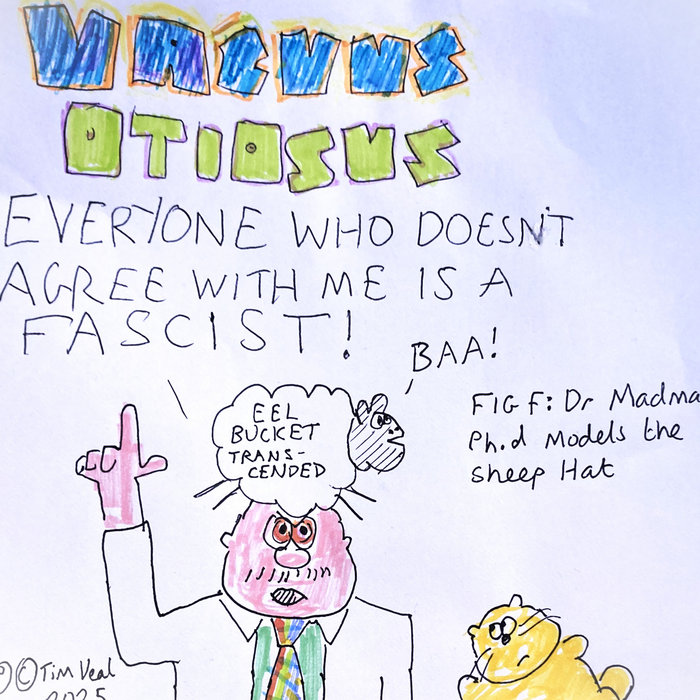 VACUUS
OTIOSUS
EVERYONE WHO DOESN'T
AGREE WITH ME IS A
FASCIST!
BAA!
EEL
BUCKET
TRANS-
CENDED
FIG F: Dr Madma
Ph.d Models the
Sheep Hat
© Tim Veal
2025